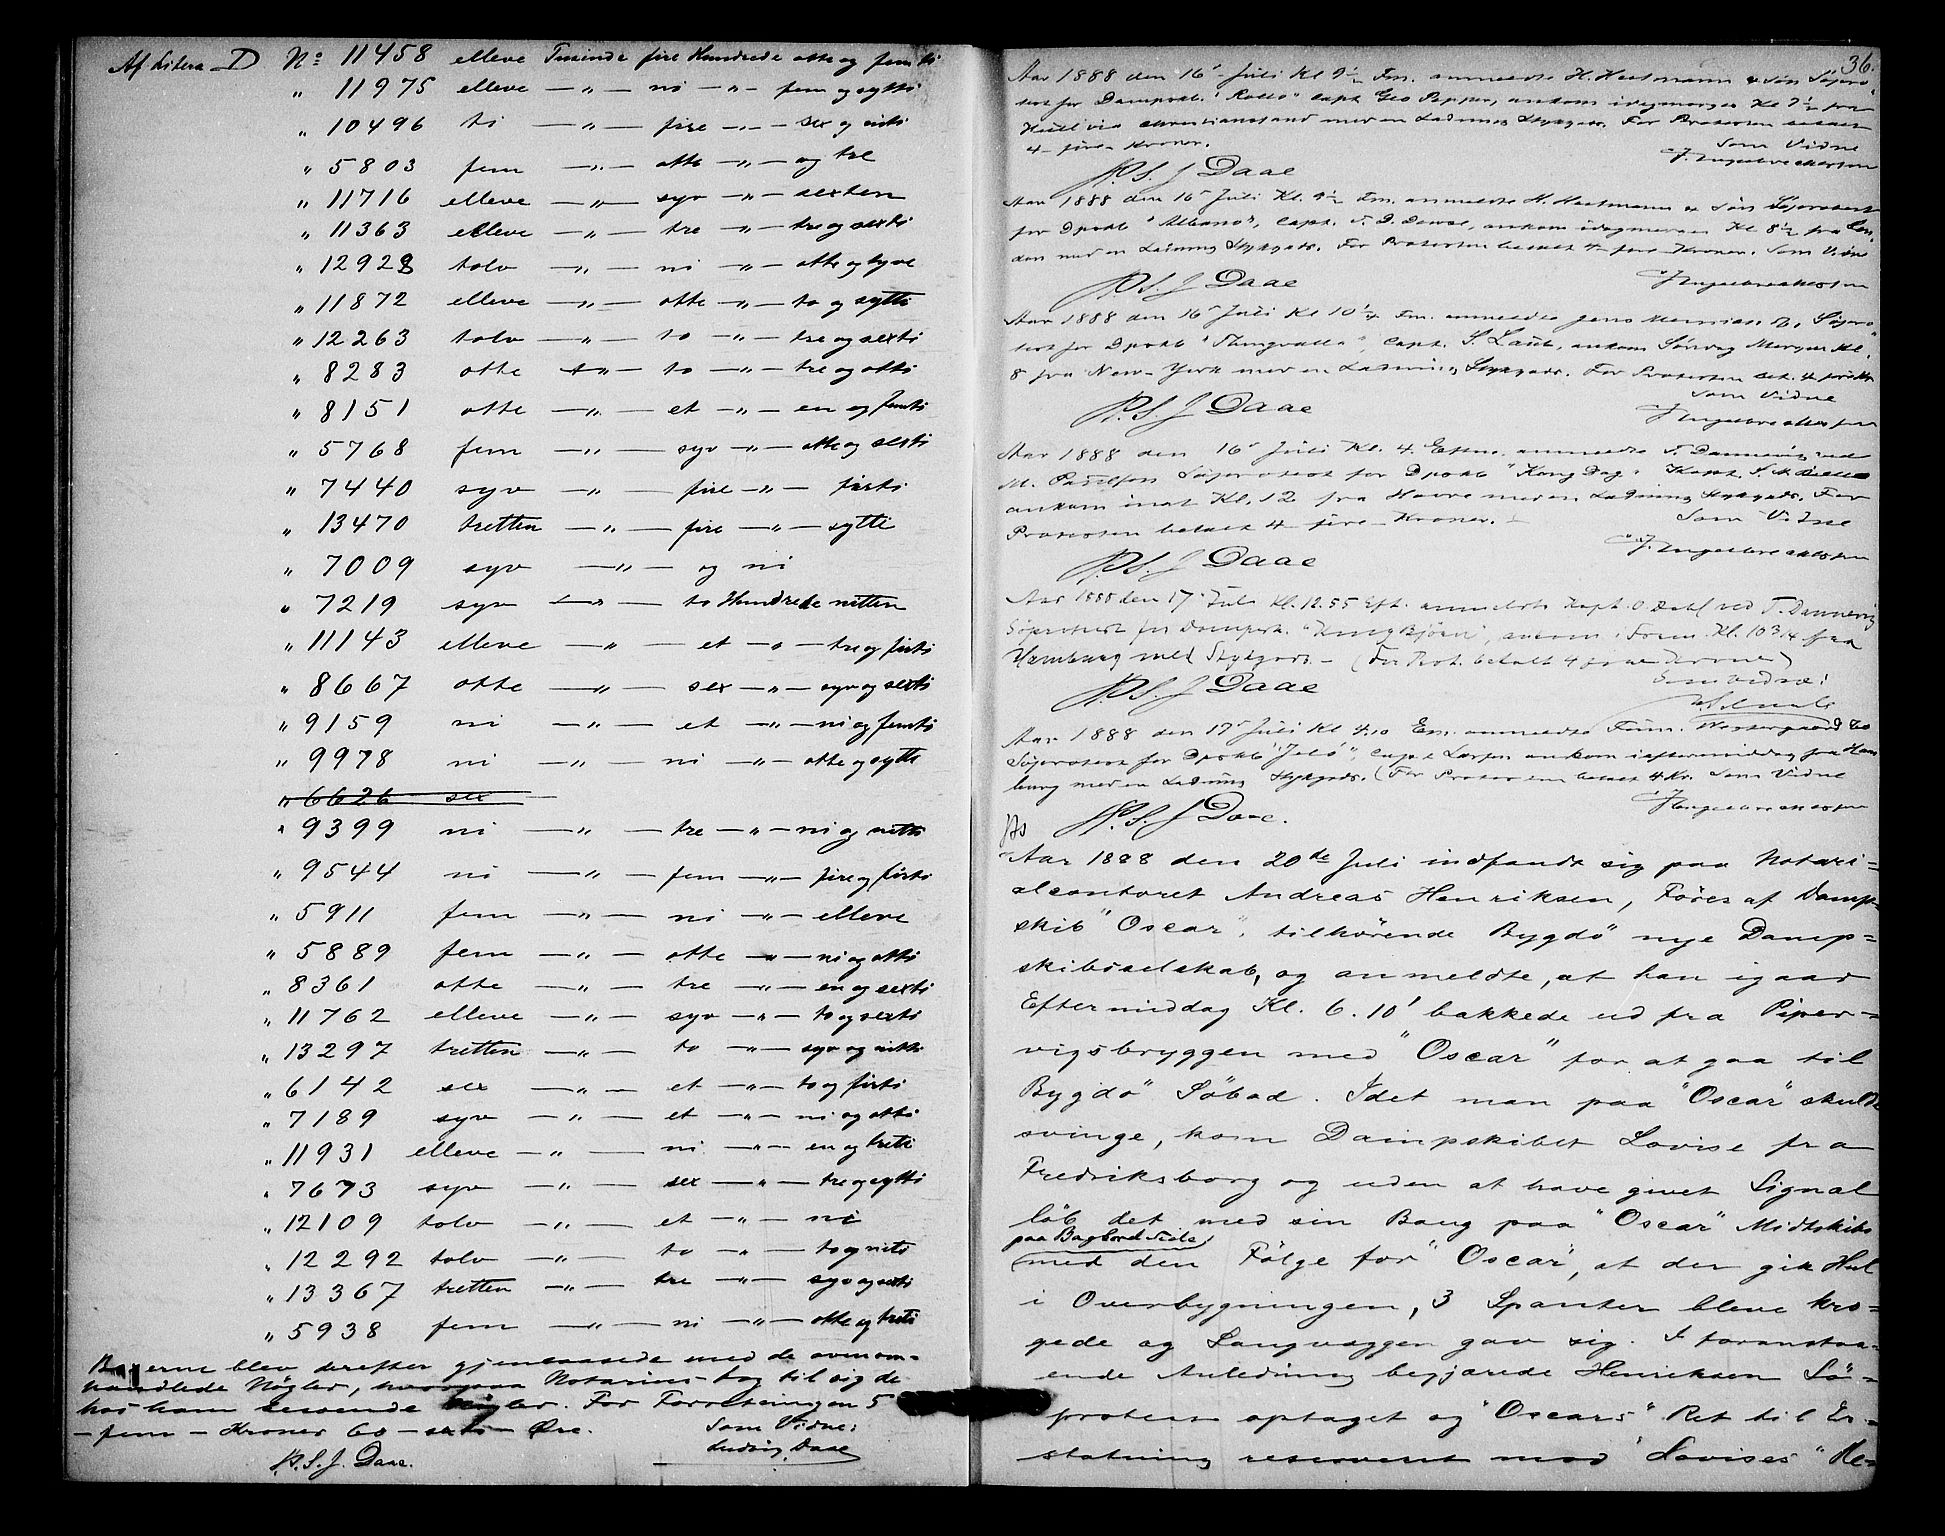 Af Litera D No 11458 elleve Tusinde fire Hundrede otte og femti
" 11975 elleve — " — ni — " — fem og sytti
" 10496 ti — " — fire — " — sex og nitti
" 5803 fem — " — otte — " — og tre
" 11716 elleve — " — syv — " — sexten
" 11363 elleve — " — tre — " — tre og sexti
" 12928 tolv — " — ni — " — otte og tyve
" 11872 elleve — " — otte — " — to og sytti
" 12263 tolv — " — to — " — tre og sexti
" 8283 otte — " — to — " — tre og otti
" 8151 otte — " — et — " — en og femti
" 5768 fem — " — syv — " — otte og sexti
" 7440 syv — " — fire — " — firti
" 13470 tretten — " — fire — " — sytti
" 7009 syv — " — og ni
" 7219 syv — " — to Hundrede nitten
" 11143 elleve — " — et — " — tre og firti
" 8667 otte — " — sex — " — syv og sexti
" 9159 ni — " — et — " — ni og femti
" 9978 ni — " — ni — " — otte og sytti
" 6626 sex
" 9399 ni — " — tre — " — ni og nitti
" 9544 ni — " — fem — " — fire og firti
" 5911 fem — " — ni — " — elleve
" 5889 fem — " — otte — " — ni og otti
" 8361 otte — " — tre — " — en og sexti
" 11762 elleve — " — syv — " — to og sexti
" 13297 tretten — " — to — " — syv og nitti
" 6142 sex — " — et — " — to og firti
" 7189 syv — " — et — " — ni og otti
" 11931 elleve — " — ni — " — en og treti
" 7673 syv — " — sex — " — tre og sytti
" 12109 tolv — " — et — " — ni
" 12292 tolv — " to — " — to og nitti
" 13367 tretten — " — tre — " — syv og sexti
" 5938 fem — " — ni — " — otte og treti
blev derefter gjenlaasede med de ovenom-
handlede Nøgler, hvorpaa Notarius tog til sig de
hos ham beroende Nøgler. For Forretningen 5
- fem - Kroner 60 - sexti - Øre.
Som Vidne:
Ludvig Daae
P.S.J. Daae.
36.
Aar 1888 den 16' Juli Kl 9½ Fm. anmeldte H. Heitmann & Søn Søpro-
test for Dampskb. "Rollo" Capt. Geo Pepper, ankom idagmorges Kl 7½ fra
Hull via Christiansand med en Ladning Stykgods. For Protesten betalt
4 - fire - Kroner.
Som Vidne
J. Ingebrechtsen
P.S.J Daae
Aar 1888 den 16' Juli Kl. 9½ Fm. anmeldte H. Heitmann & Søn Søprotest
for Dpskb "Albano", Capt. ankom idagmorges Kl 8½ fra Lon-
don med en Ladning Stykgods. For Protesten betalt 4 - fire - Kroner. Som Vidne
J Ingebrechtsen
P.S.J Daae
Aar 1888 den 16' Juli Kl 10¼ Fm. anmeldte Jens Søpro-
test for Dpskb "Thingvalla", Capt. S. Laub, ankom Søndag Morgen Kl.
8 fra New-York med en Ladning Stykgods. For Protesten bet. 4 fire Kr
Som Vidne
J Ingebrechtsen
P.S.J Daae
Aar 1888 den 16' Juli Kl. 4 Efterm. anmeldte T. Dannevig ved
M. Søprotest for Dpskb "Kong Dag" Kapt.
ankom inat Kl. 12 fra Havre med en Ladning Stykgods. For
Protesten betalt 4 - fire - Kroner. -
Som Vidne
J. Ingebrechtsen
P.S.J Daae
Aar 1888 den 17' Juli Kl. 12.55 Eft. anmeldte Kapt. O Dahl ved T. Dannevig
Søprotest for Dampsk. "Kong Bjørn", ankom i Form. Kl. 10¾ fra
Hamburg med Stykgods. - (For Prot. betalt 4 fire Kroner)
Som Vidne:
P.S.J Daae
Aar 1888 den 17' Juli Kl 4.10 Em. anmeldte Firm. Westergaard & Co
Søprotest for Dpskb "Jelö", Capt Larsen ankom ieftermiddag fra Ham
burg med en Ladning Stykgods. (For Protesten betalt 4 Kr. Som Vidne
J Ingebrechtsen
P.S.J Daae.
Aar 1888 den 20de Juli indfandt sig paa Notari-
alcontoret Andreas Henriksen, Fører af Damp-
skib "Oscar", tilhørende Bygdö nye Damp-
skibsselskab, og anmeldte, at han igaar
Eftermiddag Kl. 6.10' bakkede ud fra Piper-
vigsbryggen med "Oscar" for at gaa til
Bygdö Söbad. Idet man paa "Oscar" skulde
svinge, kom Dampskibet Lovise fra
Fredriksborg og uden at have givet Signal
løb det med sin Baug paa "Oscar" Midtskibs
paa Bagbord Side
med den Følge for "Oscar", at der gik Hul
i Overbygningen, 3 Spanter bleve kro-
gede og Langvæggen gav sig. I foranstaa-
ende Anledning begjærede Henriksen Sø-
protest optaget og "Oscars" Ret til Er-
statning reserveret mod "Lovises" Re-